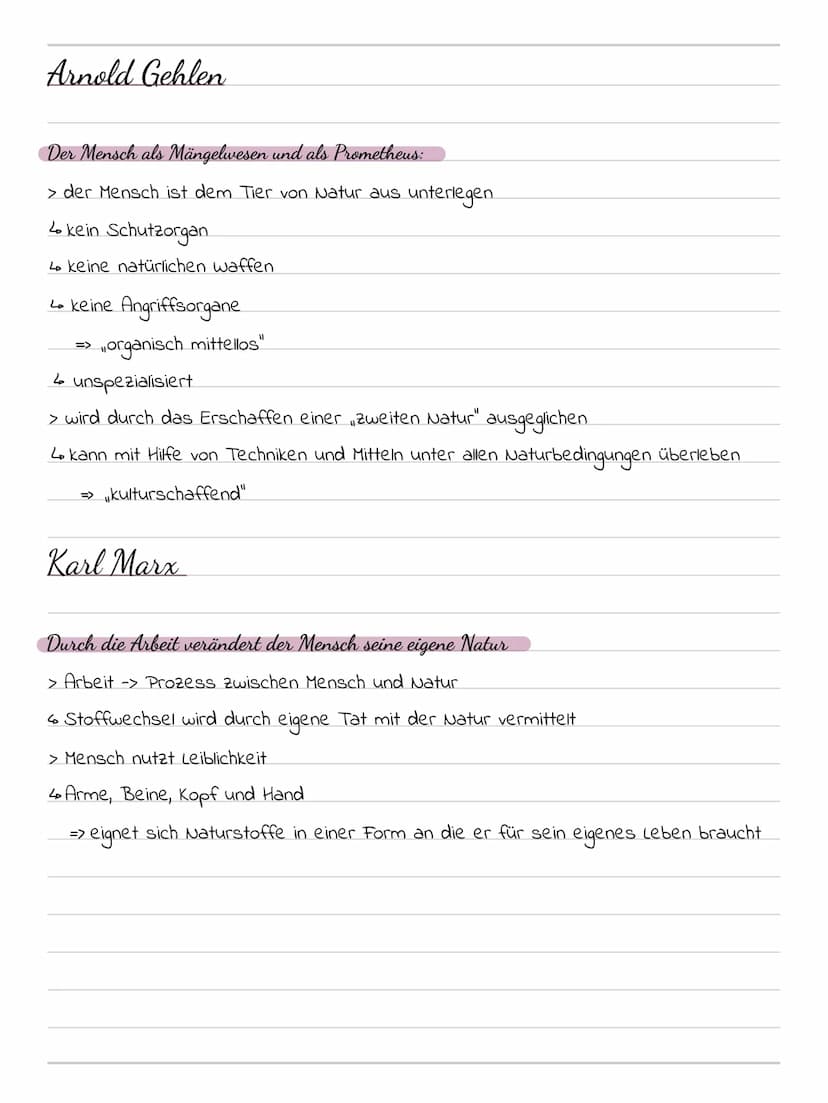 Arnold Gehlen
Der Mensch als Mängelwesen und als Prometheus:
> der Mensch ist dem Tier von Natur aus unterlegen
↳ kein Schutzorgan
↳ keine natürlichen Waffen
↳ keine Angriffsorgane
=> „organisch mittellos"
↳ unspezialisiert
> wird durch das Erschaffen einer „zweiten Natur" ausgeglichen
↳ kann mit Hilfe von Techniken und Mitteln unter allen Naturbedingungen überleben
=> „kulturschaffend"
Karl Marx
Durch die Arbeit verändert der Mensch seine eigene Natur
> Arbeit -> Prozess zwischen Mensch und Natur
↳ Stoffwechsel wird durch eigene Tat mit der Natur vermittelt
> Mensch nutzt Leiblichkeit
↳ Arme, Beine, Kopf und Hand
=> eignet sich Naturstoffe in einer Form an die er für sein eigenes Leben braucht